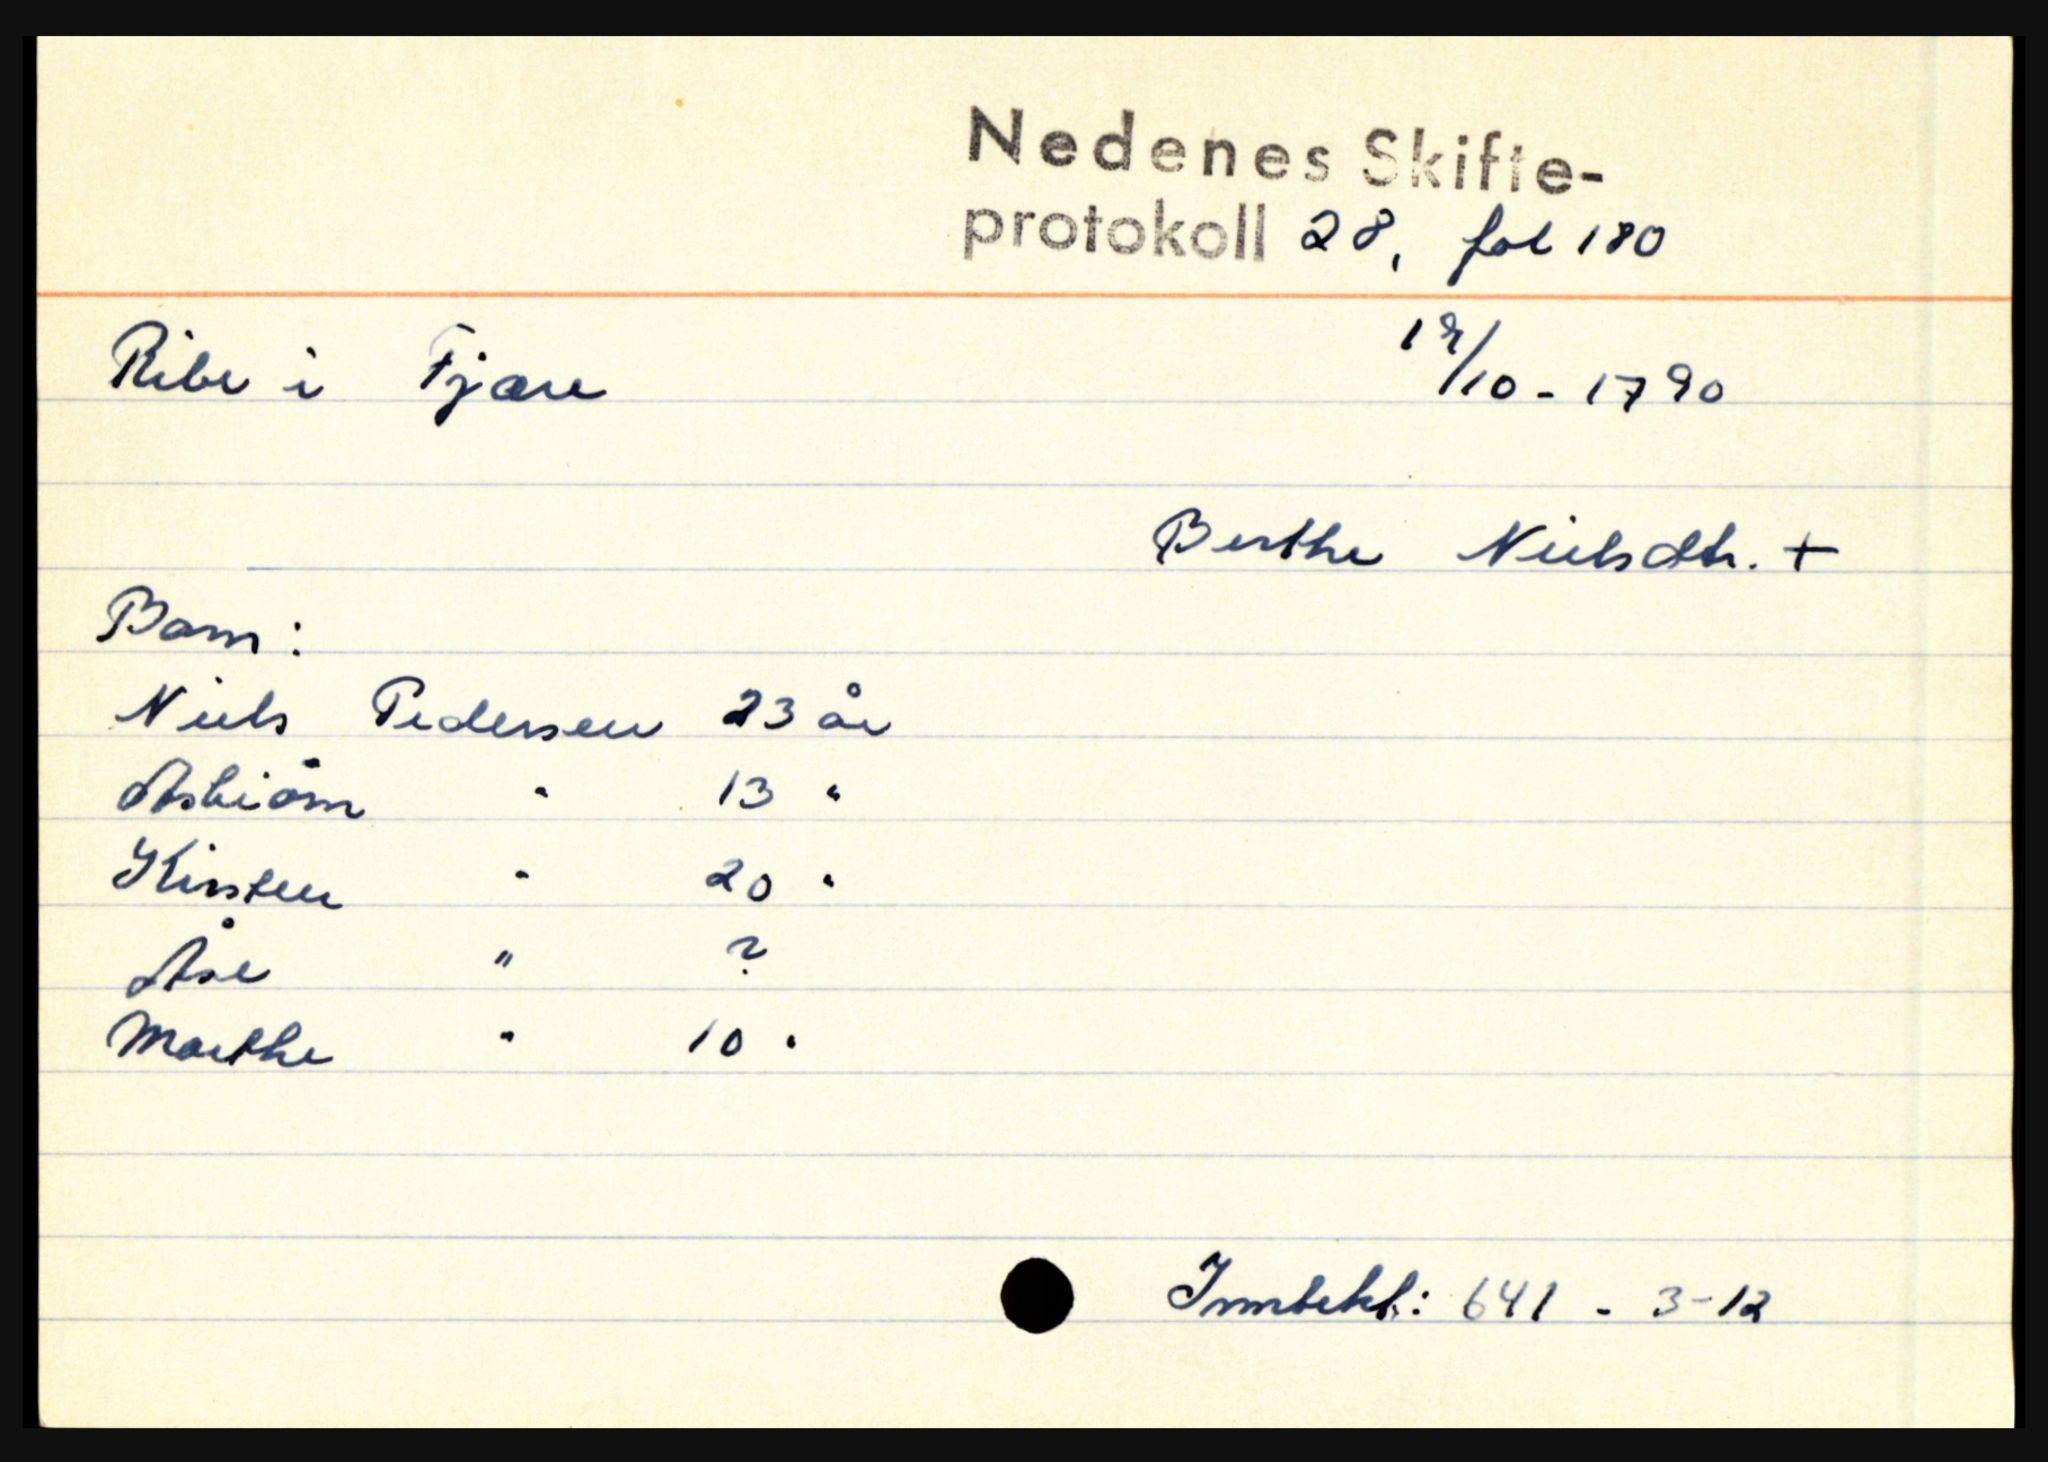 Nedenes Skifte-
protokoll 28, fol 180
Ribe i Fjære
/10 - 1790
Berthe Nielsdtr. +
Barn:
Niels Pedersen 23 år
Asbiörn " 13 "
Kirsten " 20 "
Åse " ?
Marthe " 10 "
Inntekt: 641 - 3-12